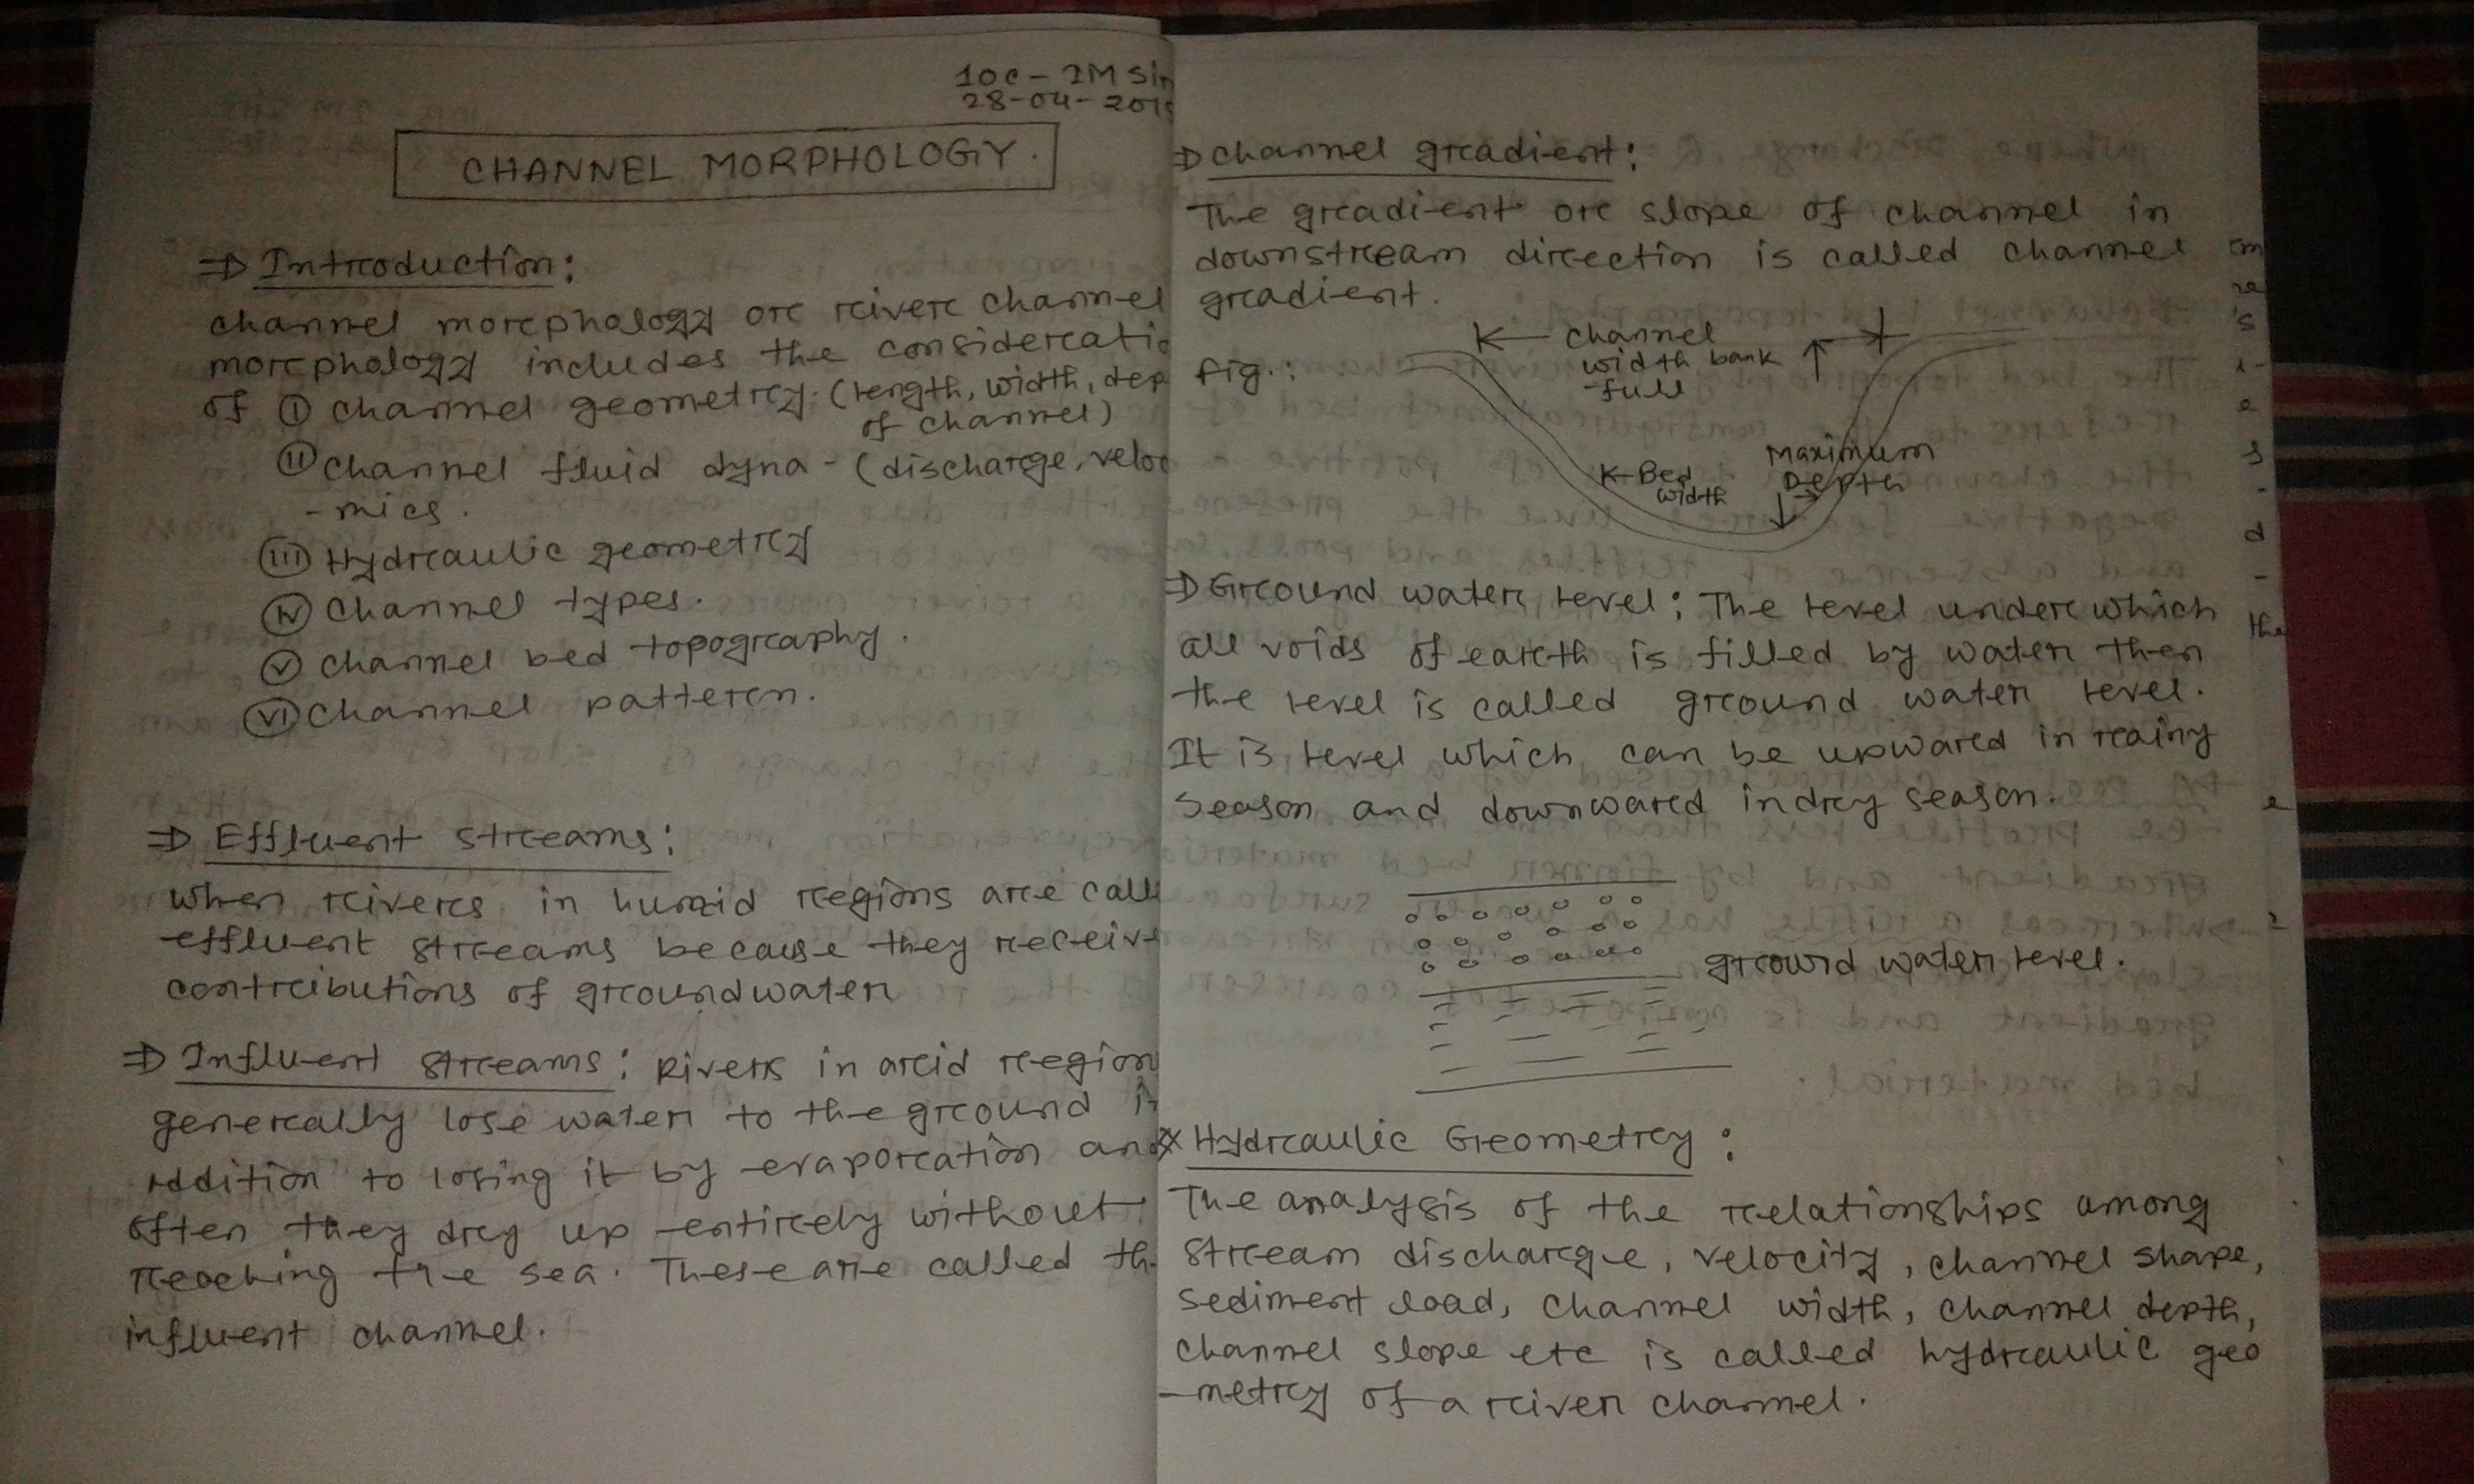 10c - IM Sir
28-04-201
CHANNEL MORPHOLOGY.
⇒ Introduction:
channel morphology or river channel
morphology includes the consideratio
of (I) channel geometry. (length, width, dep
of channel)
(II) channel fluid dyna - (discharge, veloc
- mics.
(III) Hydraulic geometry
(IV) channel types.
(V) channel bed topography.
(VI) channel pattern.
⇒ Effluent streams:
when rivers in humid regions are call
effluent streams because they receiv
contributions of groundwater
⇒ Influent streams: Rivers in arid region
generally lose water to the ground in
addition to losing it by evaporation and
often they dry up entirely without
reaching the sea. These are called th
influent channel.
⇒ channel gradient:
The gradient or slope of channel in
downstream direction is called channel
gradient.
fig.:
channel
width bank
-full
Maximum
Depth
Bed
width
⇒ Ground water level: The level under which
all voids of earth is filled by water then
the level is called ground water level.
It is level which can be upward in rainy
season and downward in dry season.
ground water level.
* Hydraulic Geometry:
The analysis of the relationships among
stream discharge, velocity, channel shape,
sediment load, channel width, channel depth,
channel slope etc is called hydraulic geo
-metry of a river channel.